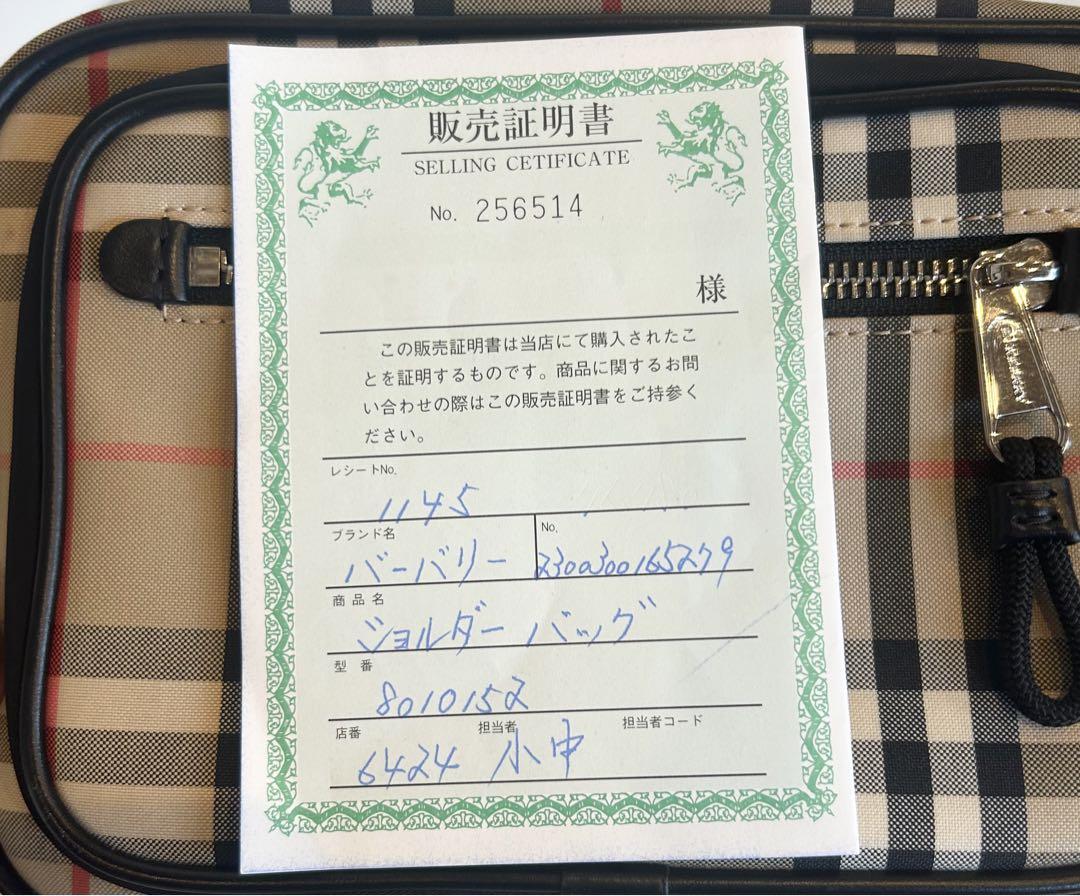 販売証明書
SELLING CETIFICATE
No. 256514
様
この販売証明書は当店にて購入されたこ
とを証明するものです。商品に関するお問
い合わせの際はこの販売証明書をご持参く
ださい。
レシートNo.
1145
ブランド名
バーバリー
No.
2300300165279
商品名
ショルダーバッグ
型番
8010152
店番 担当者 担当者コード
6424 小中
BURBERRY